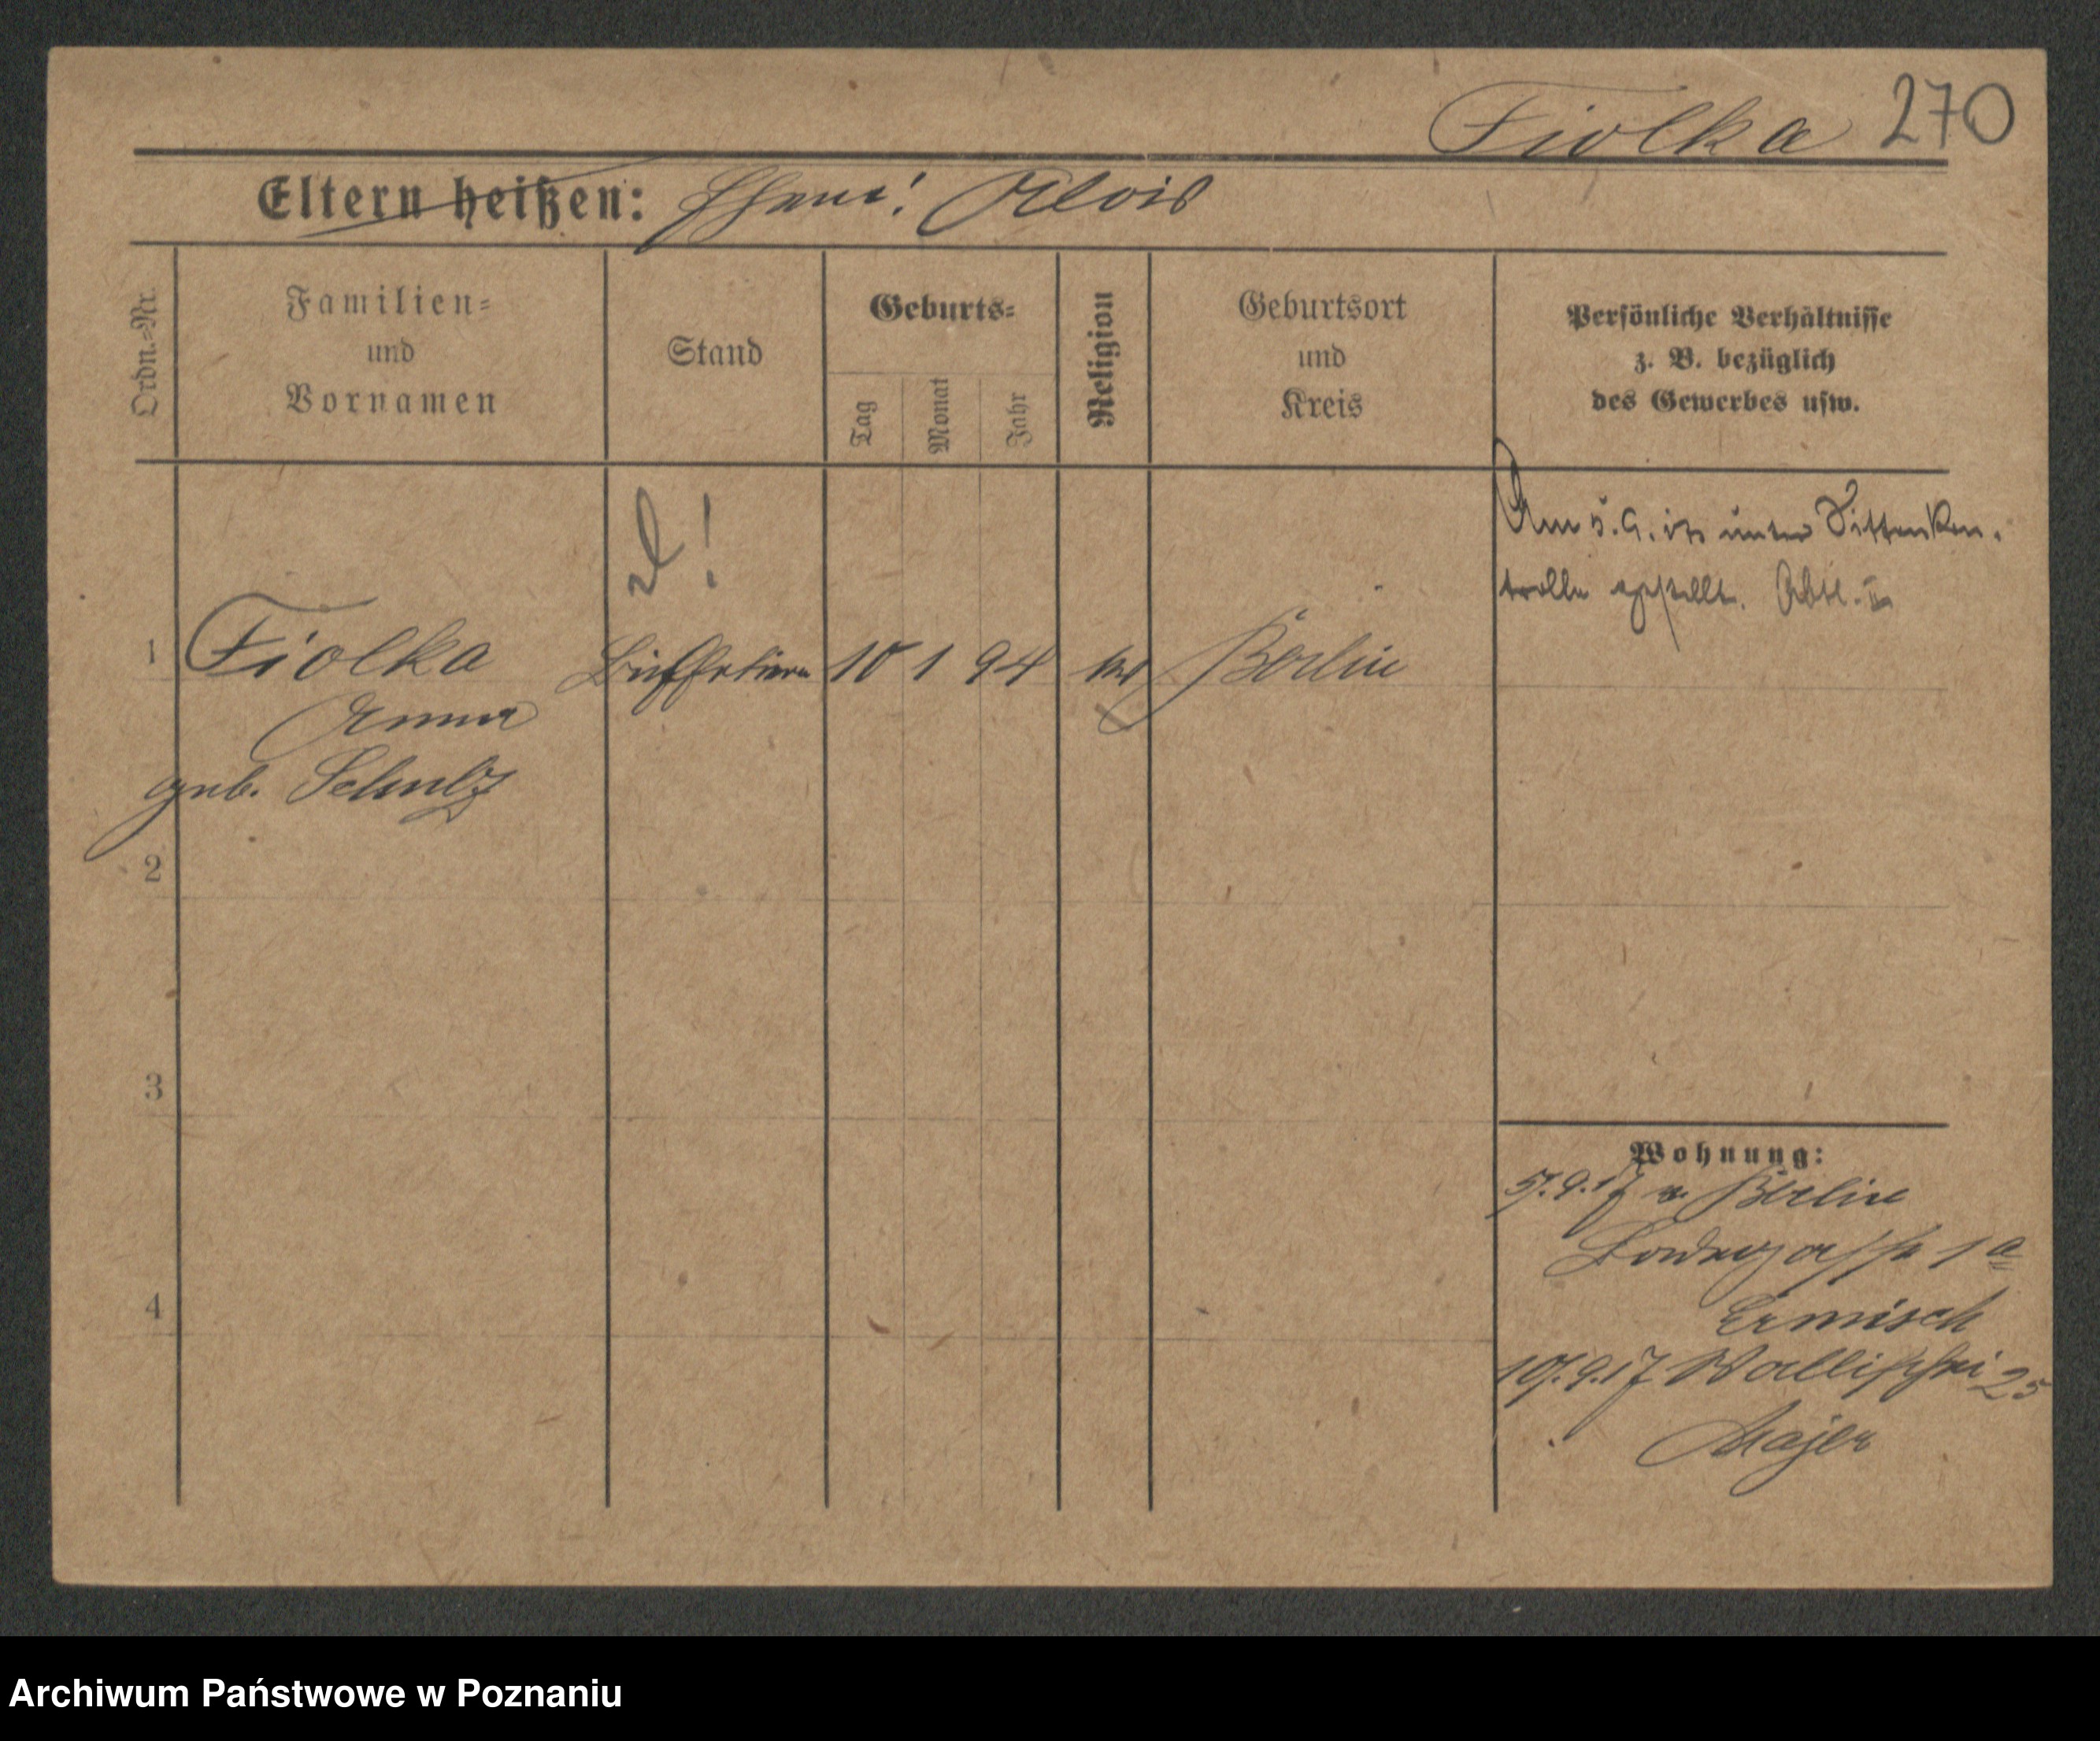 Fiolka 270
Eltern heißen: Ehem: Alois
Ordn.-Nr.
Familien-
und
Vornamen
Stand
Geburts-
Tag
Monat
Jahr
Religion
Geburtsort
und
Kreis
Persönliche Verhältnisse
z. B. bezüglich
des Gewerbes usw.
Am 5. 9. 17 unter Sittenkon-
trolle gestellt. Abtl. II
1 Fiolka Büffetiere 10 1 94 Berlin
Anna
geb. Schulz
2
3
4
Wohnung:
5.9.17 v. Berlin
1a
Ermisch
10.9.17 Wallischei 25
Majer
Archiwum Państwowe w Poznaniu